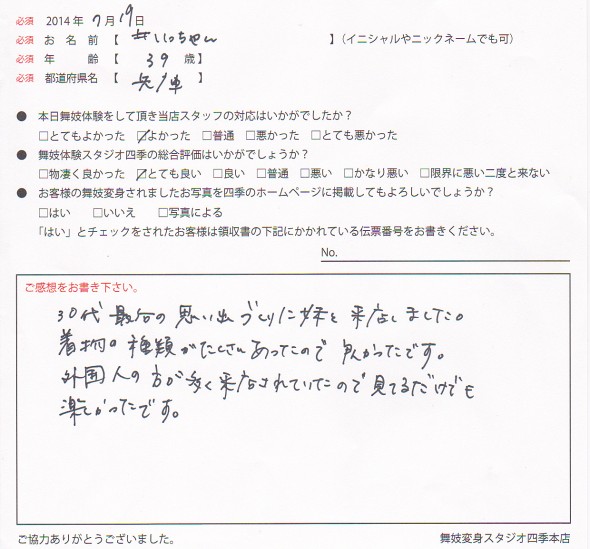 必須 2014年 7月 19日
必須 お名前【 】(イニシャルやニックネームでも可)
必須 年齢【 39 歳】
必須 都道府県名【 兵庫 】
● 本日舞妓体験をして頂き当店スタッフの対応はいかがでしたか?
□とてもよかった ☑よかった □普通 □悪かった □とても悪かった
● 舞妓体験スタジオ四季の総合評価はいかがでしょうか?
□物凄く良かった ☑とても良い □良い □普通 □悪い □かなり悪い □限界に悪い二度と来ない
● お客様の舞妓変身されましたお写真を四季のホームページに掲載してもよろしいでしょうか?
□はい □いいえ □写真による
「はい」とチェックをされたお客様は領収書の下記にかかれている伝票番号をお書きください。
No.
ご感想をお書き下さい。
30代 最后の 思い出づくりに妹と来店しました。
着物の種類がたくさんあったので良かったです。
外国人の方が多く来店されていたので見てるだけでも
楽しかったです。
ご協力ありがとうございました。 舞妓変身スタジオ四季本店